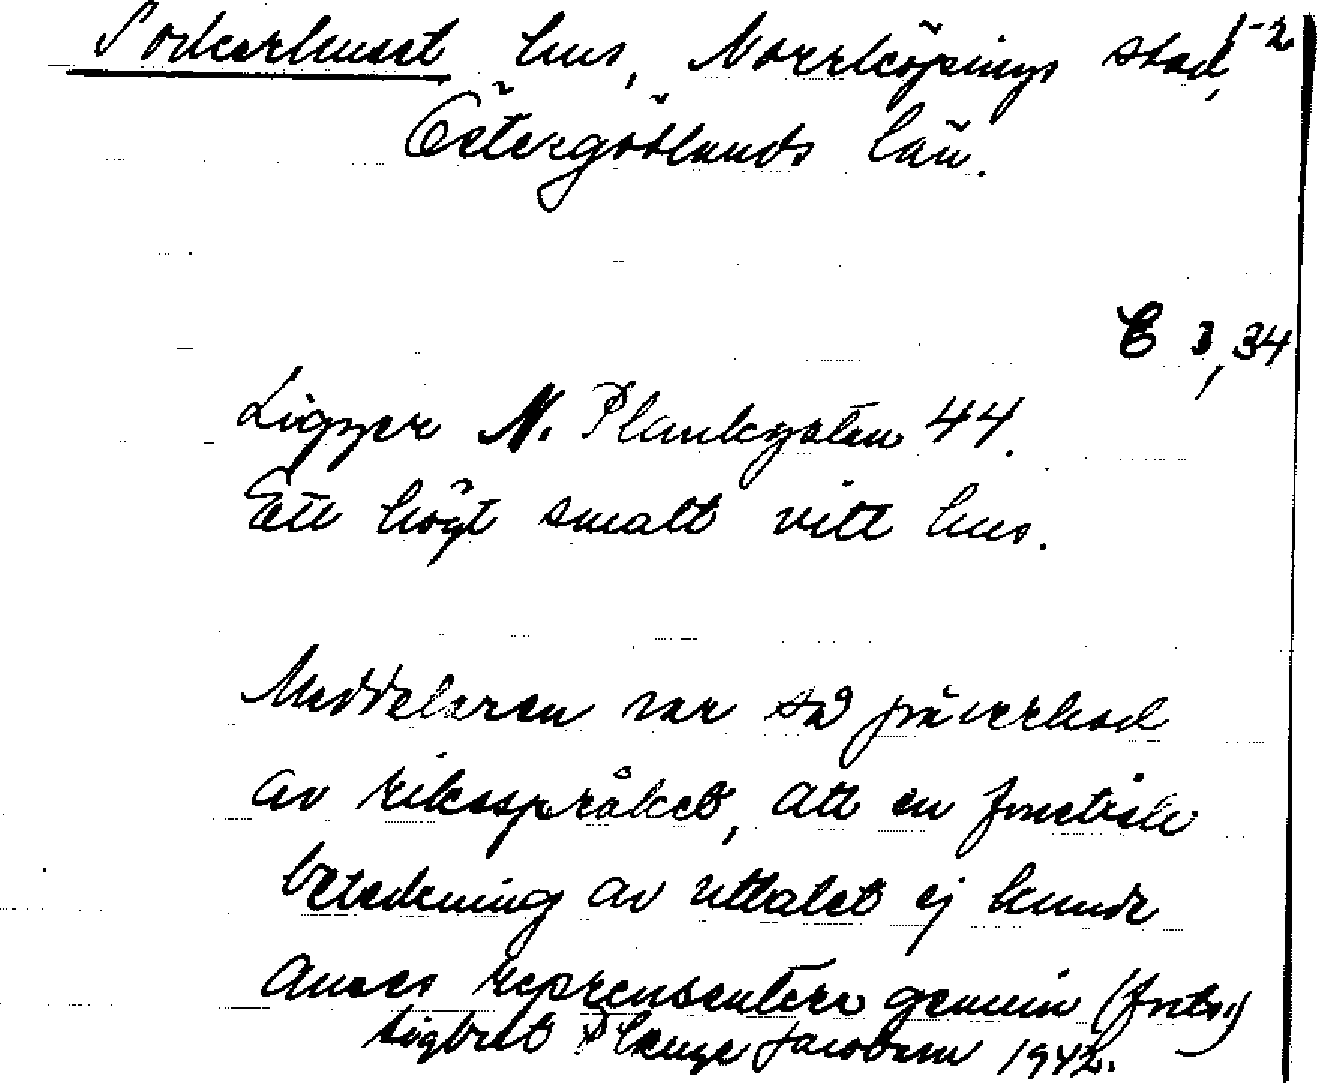 Sockerhuset hus, Norrköpings stad, 1-2
Östergötlands län.
E 3, 34
Ligger N. Plankgatan 44.
Ett högt smalt vitt hus.
Meddelaren var så påverkad
av riksspråket, att en fonetisk
beteckning av uttalet ej kunde
anses representera genuin (forts.)
Sigbrit Plænge Jacobson 1942.